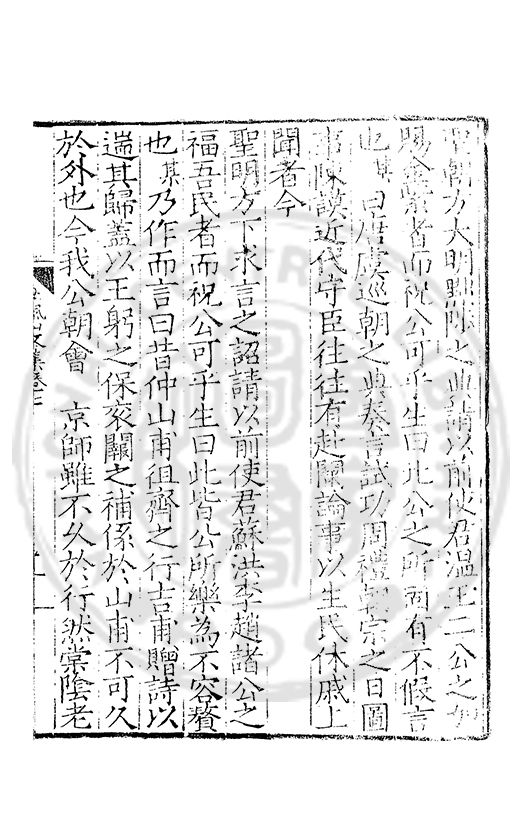 聖朝方大明黜陟之典請以前使君溫王二公之如
賜金紫者而祝公可乎生曰此公之所固有不假言
也某曰唐虞巡朝之典奏言試功周禮朝宗之日圖
事陳謨近代守臣往往有赴闕論事以生民休戚上
聞者今
聖明方下求言之詔請以前使君蘇洪李趙諸公之
福吾民者而祝公可乎生曰此皆公所樂為不容贅
也某乃作而言曰昔仲山甫徂齊之行吉甫贈詩以
遄其歸蓋以王躬之保衮闕之補係於山甫不可久
於外也今我公朝會 京師雖不久於行然棠陰老